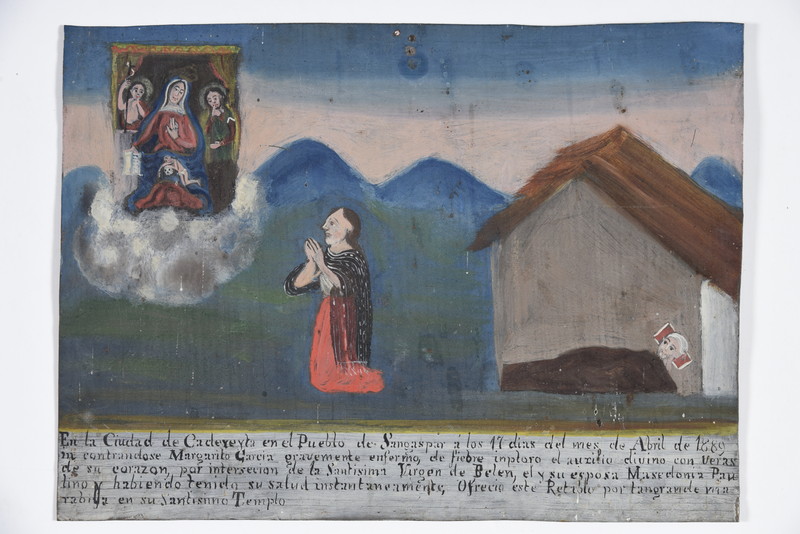 En la Ciudad de Cadereyta en el Pueblo de Sangaspar a los 17 dias del mes de Abril de 1889
en contrandose Margarito Garcia gravemente enfermo, de fiebre inploro el auxilio divino con veras
de su corazon, por intersecion de la Santisima Virgen de Belen, el y su esposa Masedonia Pau
lino y habiendo tenido su salud instantaneamente, Ofrecio este Retablo por tangrande ma
rabiya en su Santisimo Templo